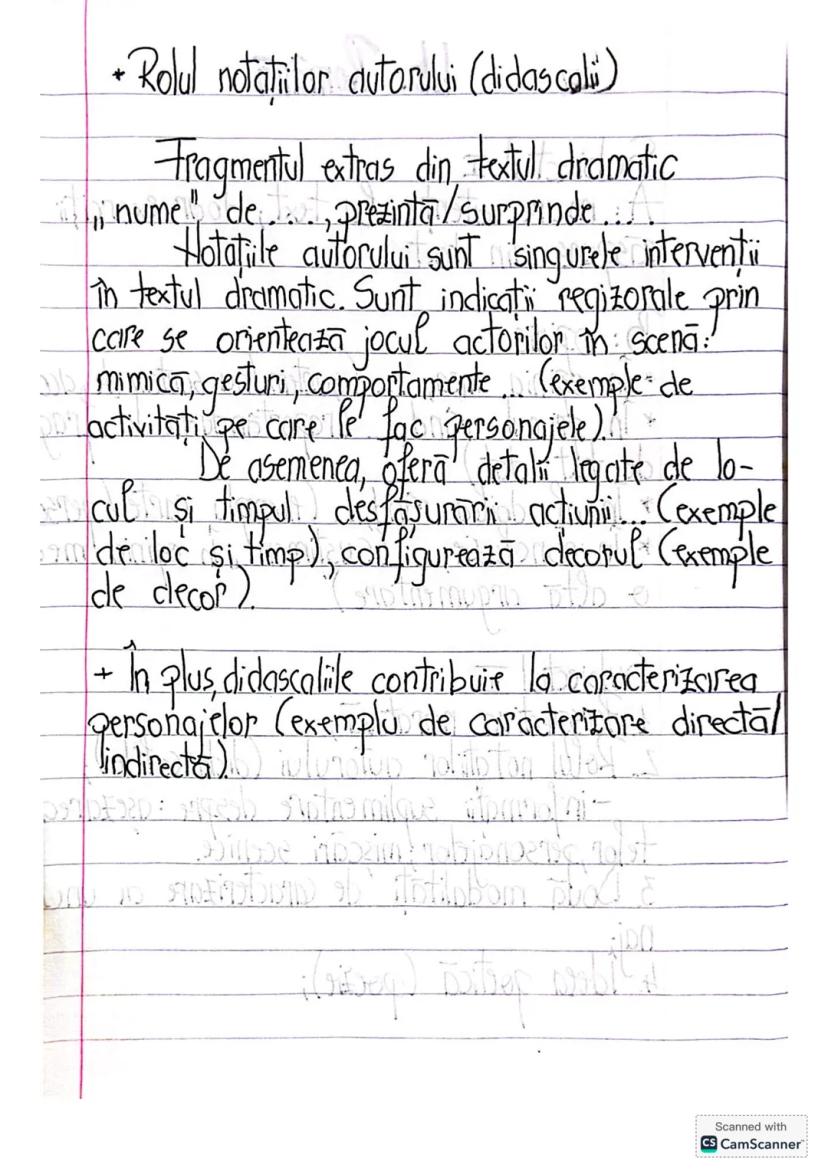 * Rolul notațiilor autorului (didascalii)
Fragmentul extras din textul dramatic
„nume" de ...., prezintă/surprinde ....
Notațiile autorului sunt singurele intervenții
în textul dramatic. Sunt indicații regizorale prin
care se orientează jocul actorilor în scenă:
mimică, gesturi, comportamente ... (exemple de
activități pe care le fac personajele).
De asemenea, oferă detalii legate de lo-
cul și timpul desfășurării acțiunii ... (exemple
de loc și timp), configurează decorul (exemple
de decor).
+ În plus, didascaliile contribuie la caracterizarea
personajelor (exemplu de caracterizare directă/
indirectă).
Scanned with
CS CamScanner